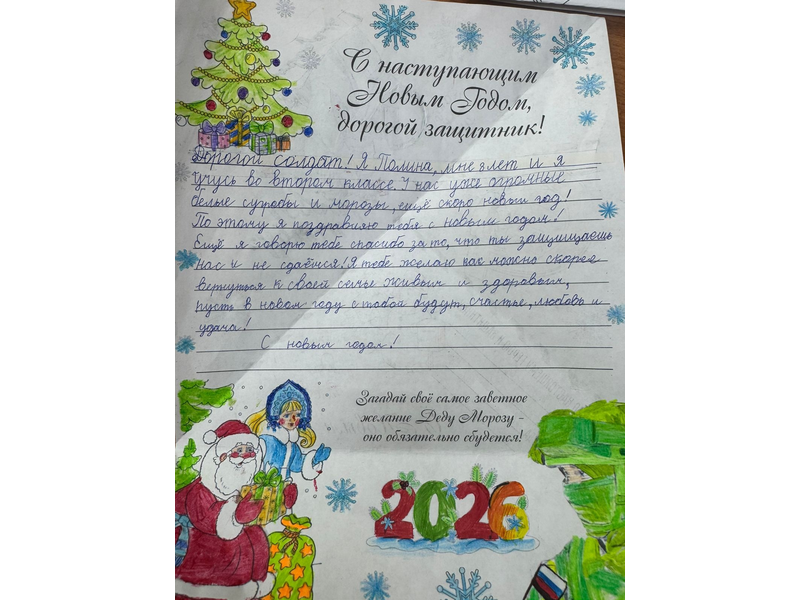 С наступающим
Новым Годом,
дорогой защитник!
Дорогой солдат! Я Полина, мне 8 лет и я
учусь во втором классе. У нас уже огромные
белые сугробы и морозы, ещё скоро новый год!
По этому я поздравляю тебя с новым годом!
Ещё я говорю тебе спасибо за то, что ты защищаешь
нас и не сдаёшся! Я тебе желаю как можно скорее
вернуться к своей семье живым и здоровым,
пусть в новом году с тобой будут, счастье, любовь и
удача!
С новым годом!
Загадай своё самое заветное
желание Деду Морозу -
оно обязательно сбудется!
2026